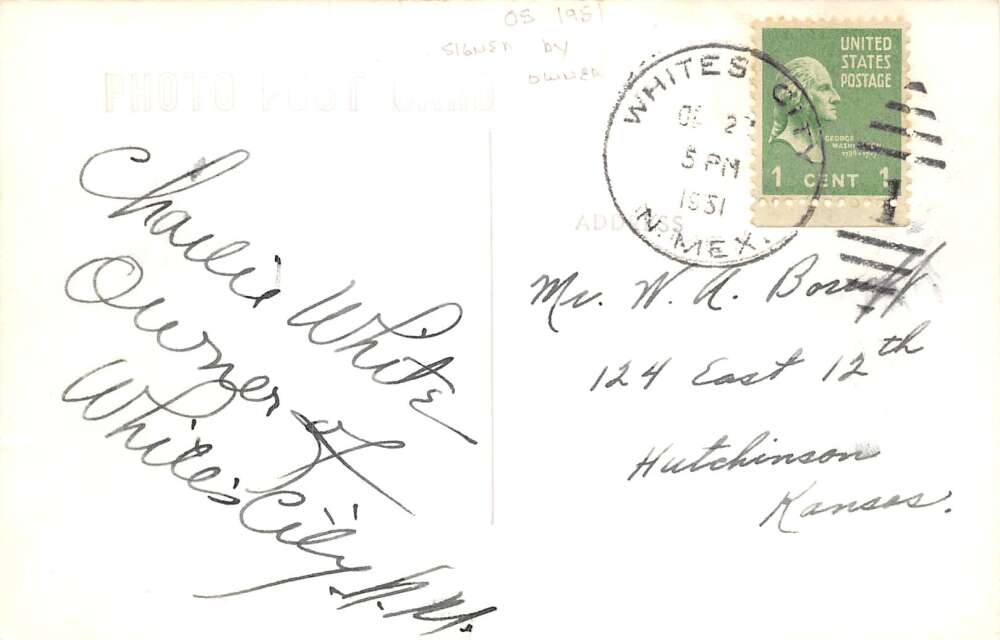 OS 1951
SIGNED by
OWNER
PHOTO POST CARD
WHITES CITY
27
5 PM
1951
N. MEX.
UNITED
STATES
POSTAGE
GEORGE
WASHINGTON
1 CENT 1
ADDRESS
Charlie White
Owner of
White's City, N.M.
Mr. W. A.
124 East 12th
Hutchinson
Kansas.